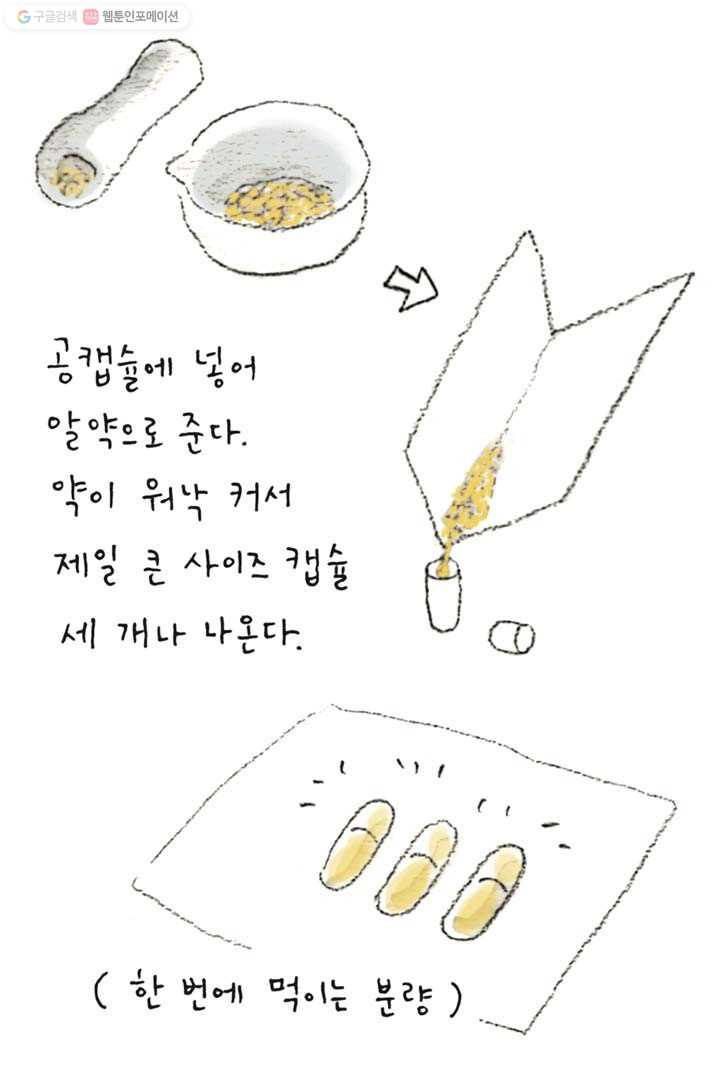 구글검색 웹툰인포메이션
공캡슐에 넣어
알약으로 준다.
약이 워낙 커서
제일 큰 사이즈 캡슐
세 개나 나온다.
( 한 번에 먹이는 분량 )